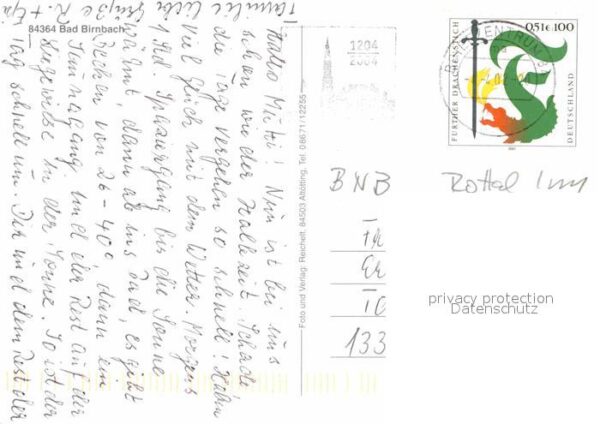 84364 Bad Birnbach
Hallo Mutti! Nun ist bei uns
schon wieder Halbzeit. Schade
die Tage vergehen so schnell! Haben
viel Glück mit dem Wetter. Morgens
1 Std. Spaziergang bis die Sonne
wärmt, dann ab ins Bad, es gibt
Becken von 26-40°, dann ein
und der Rest auf der
Liegewiese in der Sonne. So ist der
Tag schnell um. Dir und dem Rest der
Familie liebe Grüße R. +
Foto und Verlag: Reichelt, 84503 Altötting, Tel. 08671/12255
1204
2004
FURTHER DRACHENSTICH
0,51€ 100
DEUTSCHLAND
BNB
Rottal Inn
133
privacy protection
Datenschutz